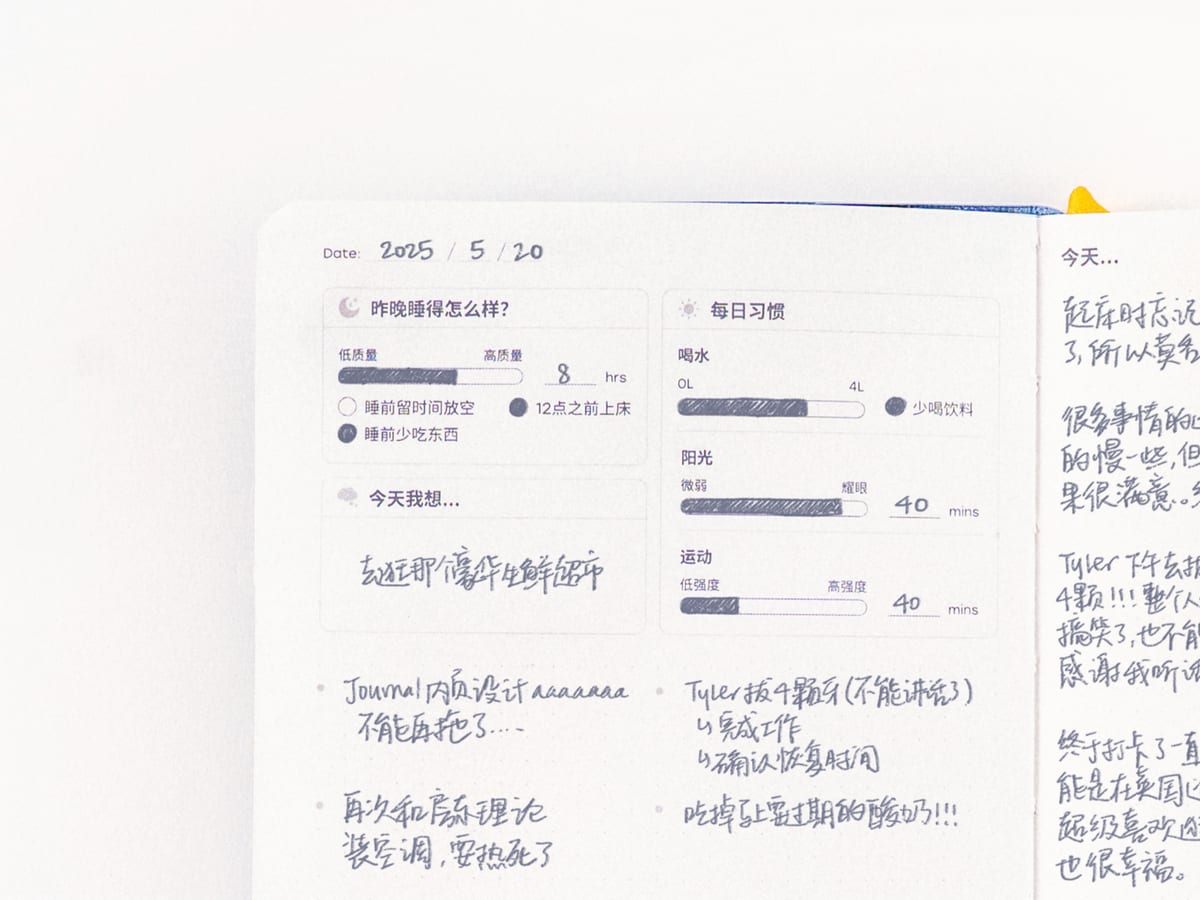 Date: 2025 / 5 / 20
昨晚睡得怎么样?
低质量 高质量
8 hrs
睡前留时间放空 12点之前上床
睡前少吃东西
今天我想...
去逛那个豪华生鲜超市
每日习惯
喝水
0L 4L
少喝饮料
阳光
微弱 耀眼
40 mins
运动
低强度 高强度
40 mins
Journal内页设计aaaaaaa
不能再拖了....
再次和房东理论
装空调,要热死了
Tyler拔4颗牙(不能讲话了)
↳完成工作
↳确认恢复时间
吃掉马上要过期的酸奶!!!
今天...
起床时忘记
了,所以莫名
很多事情的
的慢一些,但
果很满意。
Tyler下午去拔
4颗!!!整个人
搞笑了,也不能
感谢我听话
终于打卡了一直
能是在英国
超级喜欢逛
也很幸福。